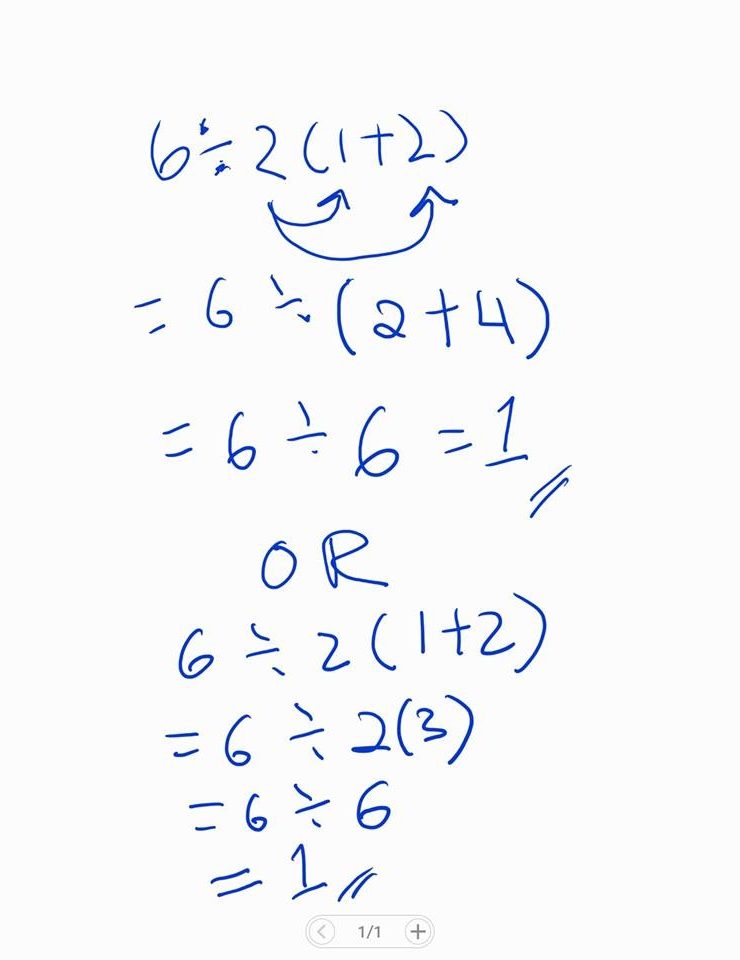 6÷2(1+2)
= 6 ÷ (2+4)
= 6 ÷ 6 = 1
OR
6 ÷ 2(1+2)
= 6 ÷ 2(3)
= 6 ÷ 6
= 1
1/1